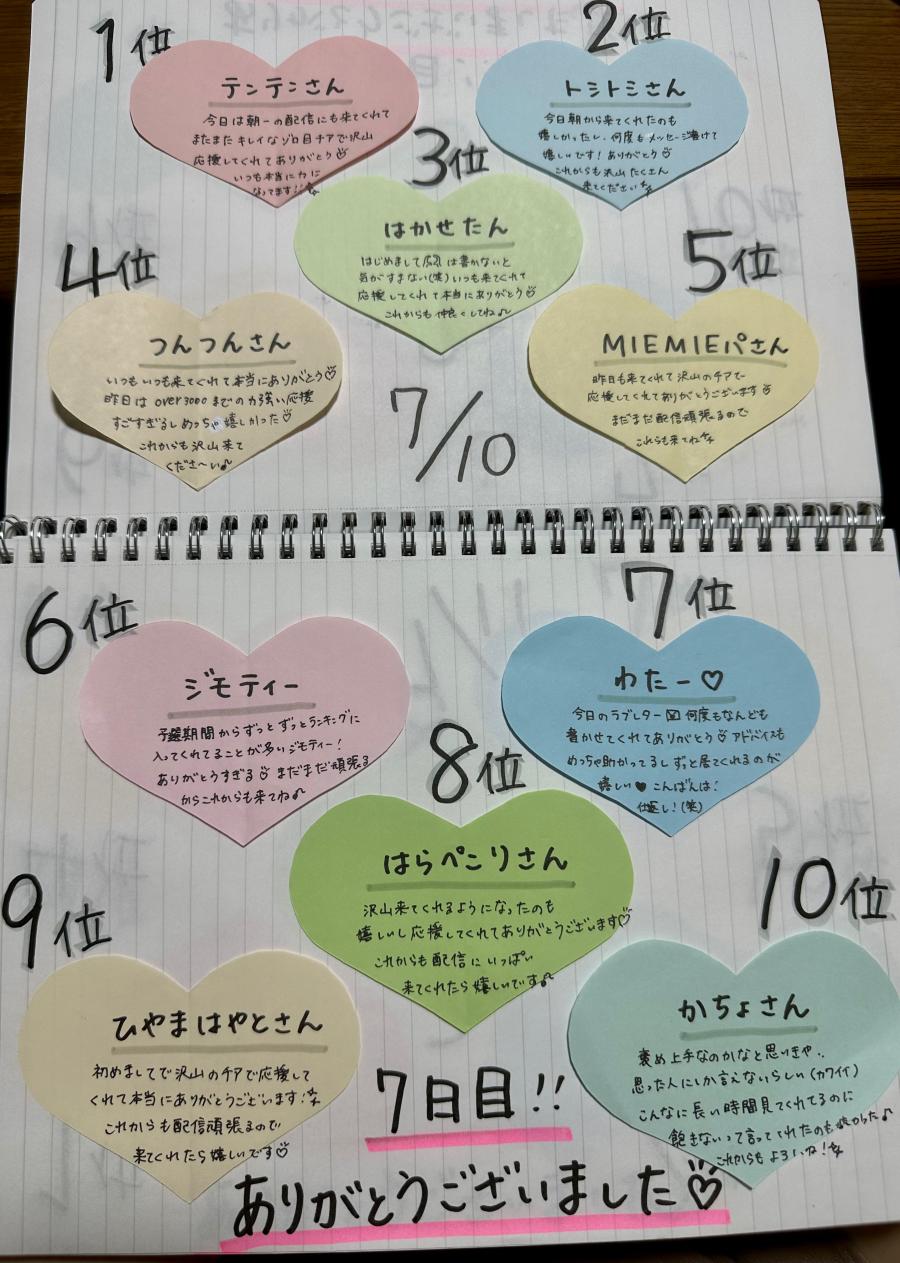 1位
テンテンさん
今日は朝一の配信にも来てくれて
またまたキレイなゾロ目チアで沢山
応援してくれてありがとう♡
いつも本当に力に
なってます!!☆
2位
トシトシさん
今日朝から来てくれたのも
嬉しかったし、何度もメッセージ書けて
嬉しいです!ありがとう♡
これからも沢山たくさん
来てください☆
3位
はかせたん
はじめまして は書かないと
気がすまない(笑)いつも来てくれて
応援してくれて本当にありがとう♡
これからも仲良くしてね♪
4位
つんつんさん
いつもいつも来てくれて本当にありがとう♡
昨日はover3000までの力強い応援
すごすぎるしめっちゃ嬉しかった♡
これからも沢山来て
くださ〜い♪
5位
MIEMIEパさん
昨日も来てくれて沢山のチアで
応援してくれてありがとうございます♡
まだまだ配信頑張るので
これらも来てね☆
7/10
6位
ジモティー
予選期間からずっとずっとランキングに
入ってくれてることが多いジモティー!
ありがとうすぎる♡まだまだ頑張る
からこれからも来てね♪
7位
わたー♡
今日のラブレター✉何度もなんども
書かせてくれてありがとう♡アドバイスも
めっちゃ助かってるしずっと居てくれるのが
嬉しい♥こんばんは!
仕返し!(笑)
8位
はらぺこりさん
沢山来てくれるようになったのも
嬉しいし応援してくれてありがとうございます♡
これからも配信にいっぱい
来てくれたら嬉しいです♪
9位
ひやまはやとさん
初めましてで沢山のチアで応援して
くれて本当にありがとうございます!☆
これからも配信頑張るので
来てくれたら嬉しいです♡
10位
かちょさん
褒め上手なのかなと思いきや..
思った人にしか言えないらしい(カワイイ)
こんなに長い時間見てくれてるのに
飽きないって言ってくれたのも かった♪
これからもよろしくね!☆
7日目!!
ありがとうございました♡